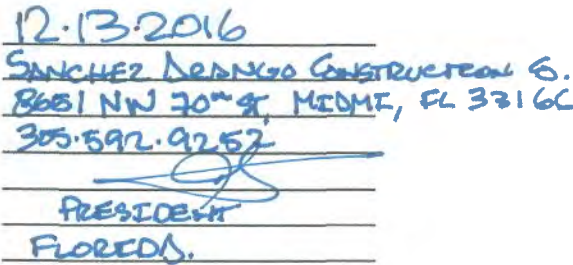 12.13.2016
SANCHEZ ARANGO CONSTRUCTION CO.
8651 NW 70TH ST, MIAMI, FL 33166
305.592.9252
PRESIDENT
FLORIDA.